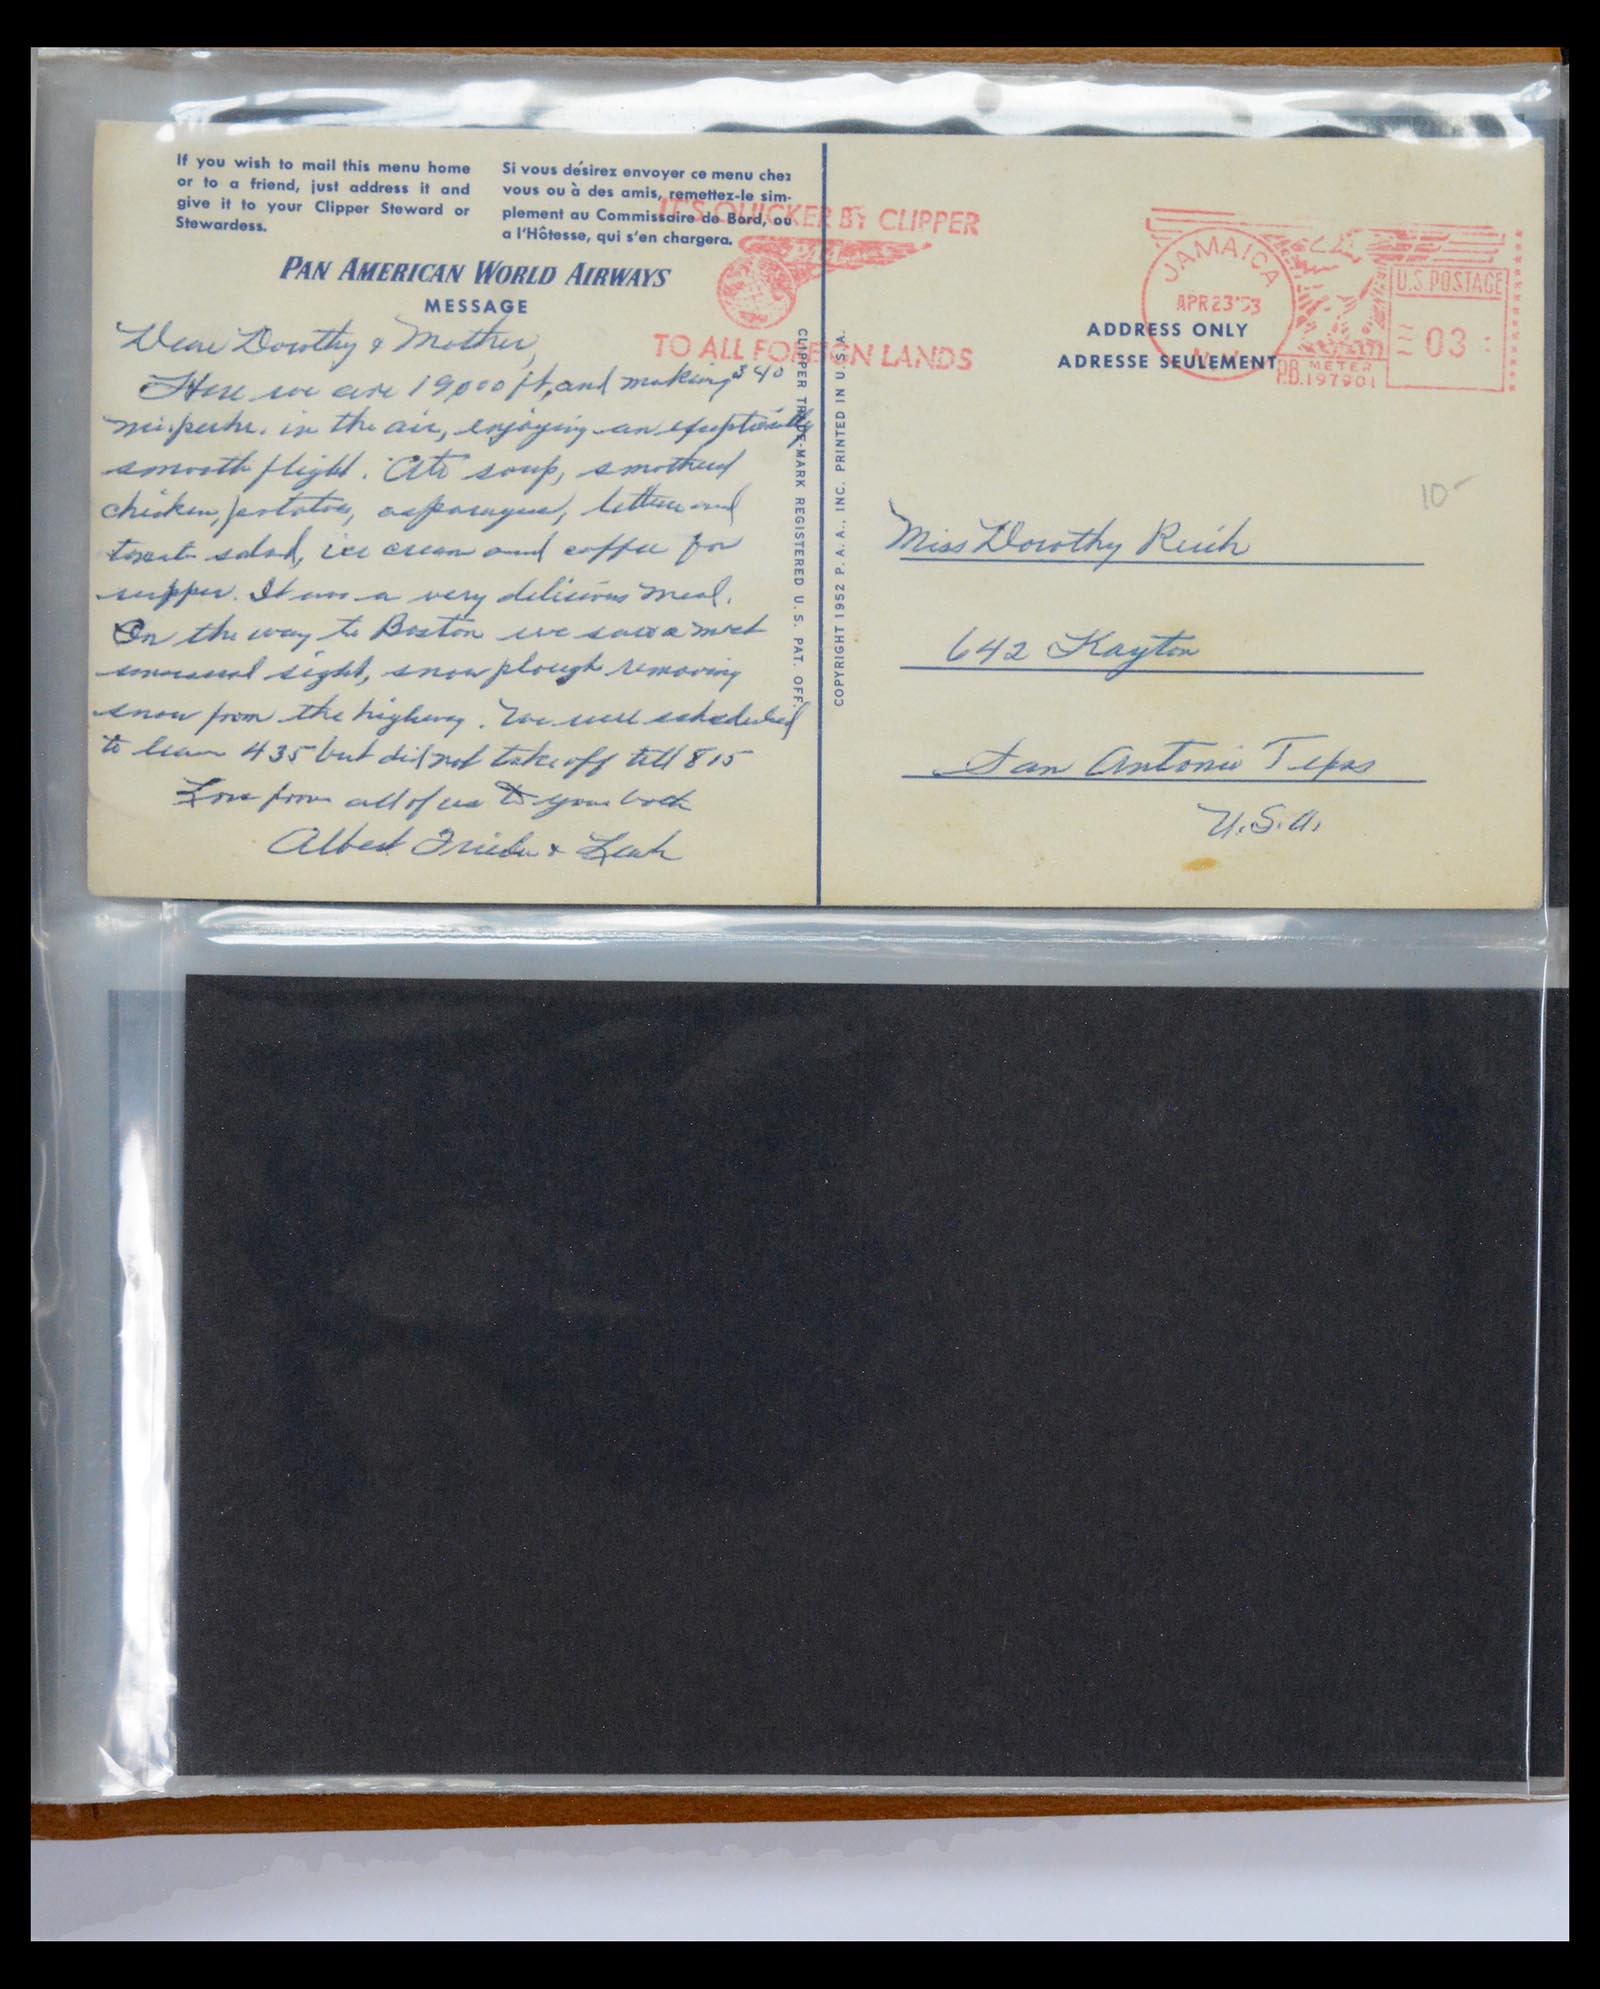 If you wish to mail this menu home
or to a friend, just address it and
give it to your Clipper Steward or
Stewardess.
Si vous désirez envoyer ce menu chez
vous ou à des amis, remettez-le sim-
plement au Commissaire de Bord, ou
a l'Hôtesse, qui s'en chargera.
PAN AMERICAN WORLD AIRWAYS
MESSAGE
Dear Dorothy & Mother,
Here we are 19,000 ft, and making 340
mi. per hr. in the air, enjoying an exceptionally
smooth flight. Ate soup, smothered
chicken, potatoes, asparagus, lettuce and
tomato salad, ice cream and coffee for
supper. It was a very delicious meal.
On the way to Boston we saw a most
unusual sight, snow plough removing
snow from the highway. We were scheduled
to leave 435 but did not take off till 815
Love from all of us to you both
Albert Frieda & Leah
CLIPPER TRADE-MARK REGISTERED U. S. PAT. OFF.
COPYRIGHT 1952 P. A. A., INC. PRINTED IN U.S.A.
IT'S QUICKER BY CLIPPER
TO ALL FOREIGN LANDS
JAMAICA
APR 23 '53
N.Y.
U.S. POSTAGE
03
METER
P.B. 197901
ADDRESS ONLY
ADRESSE SEULEMENT
10-
Miss Dorothy Reich
642 Kayton
San Antonio Texas
U.S.A.